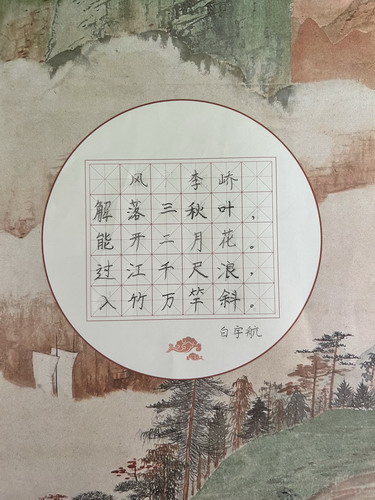 风 李峤
解落三秋叶，
能开二月花。
过江千尺浪，
入竹万竿斜。
白宇航